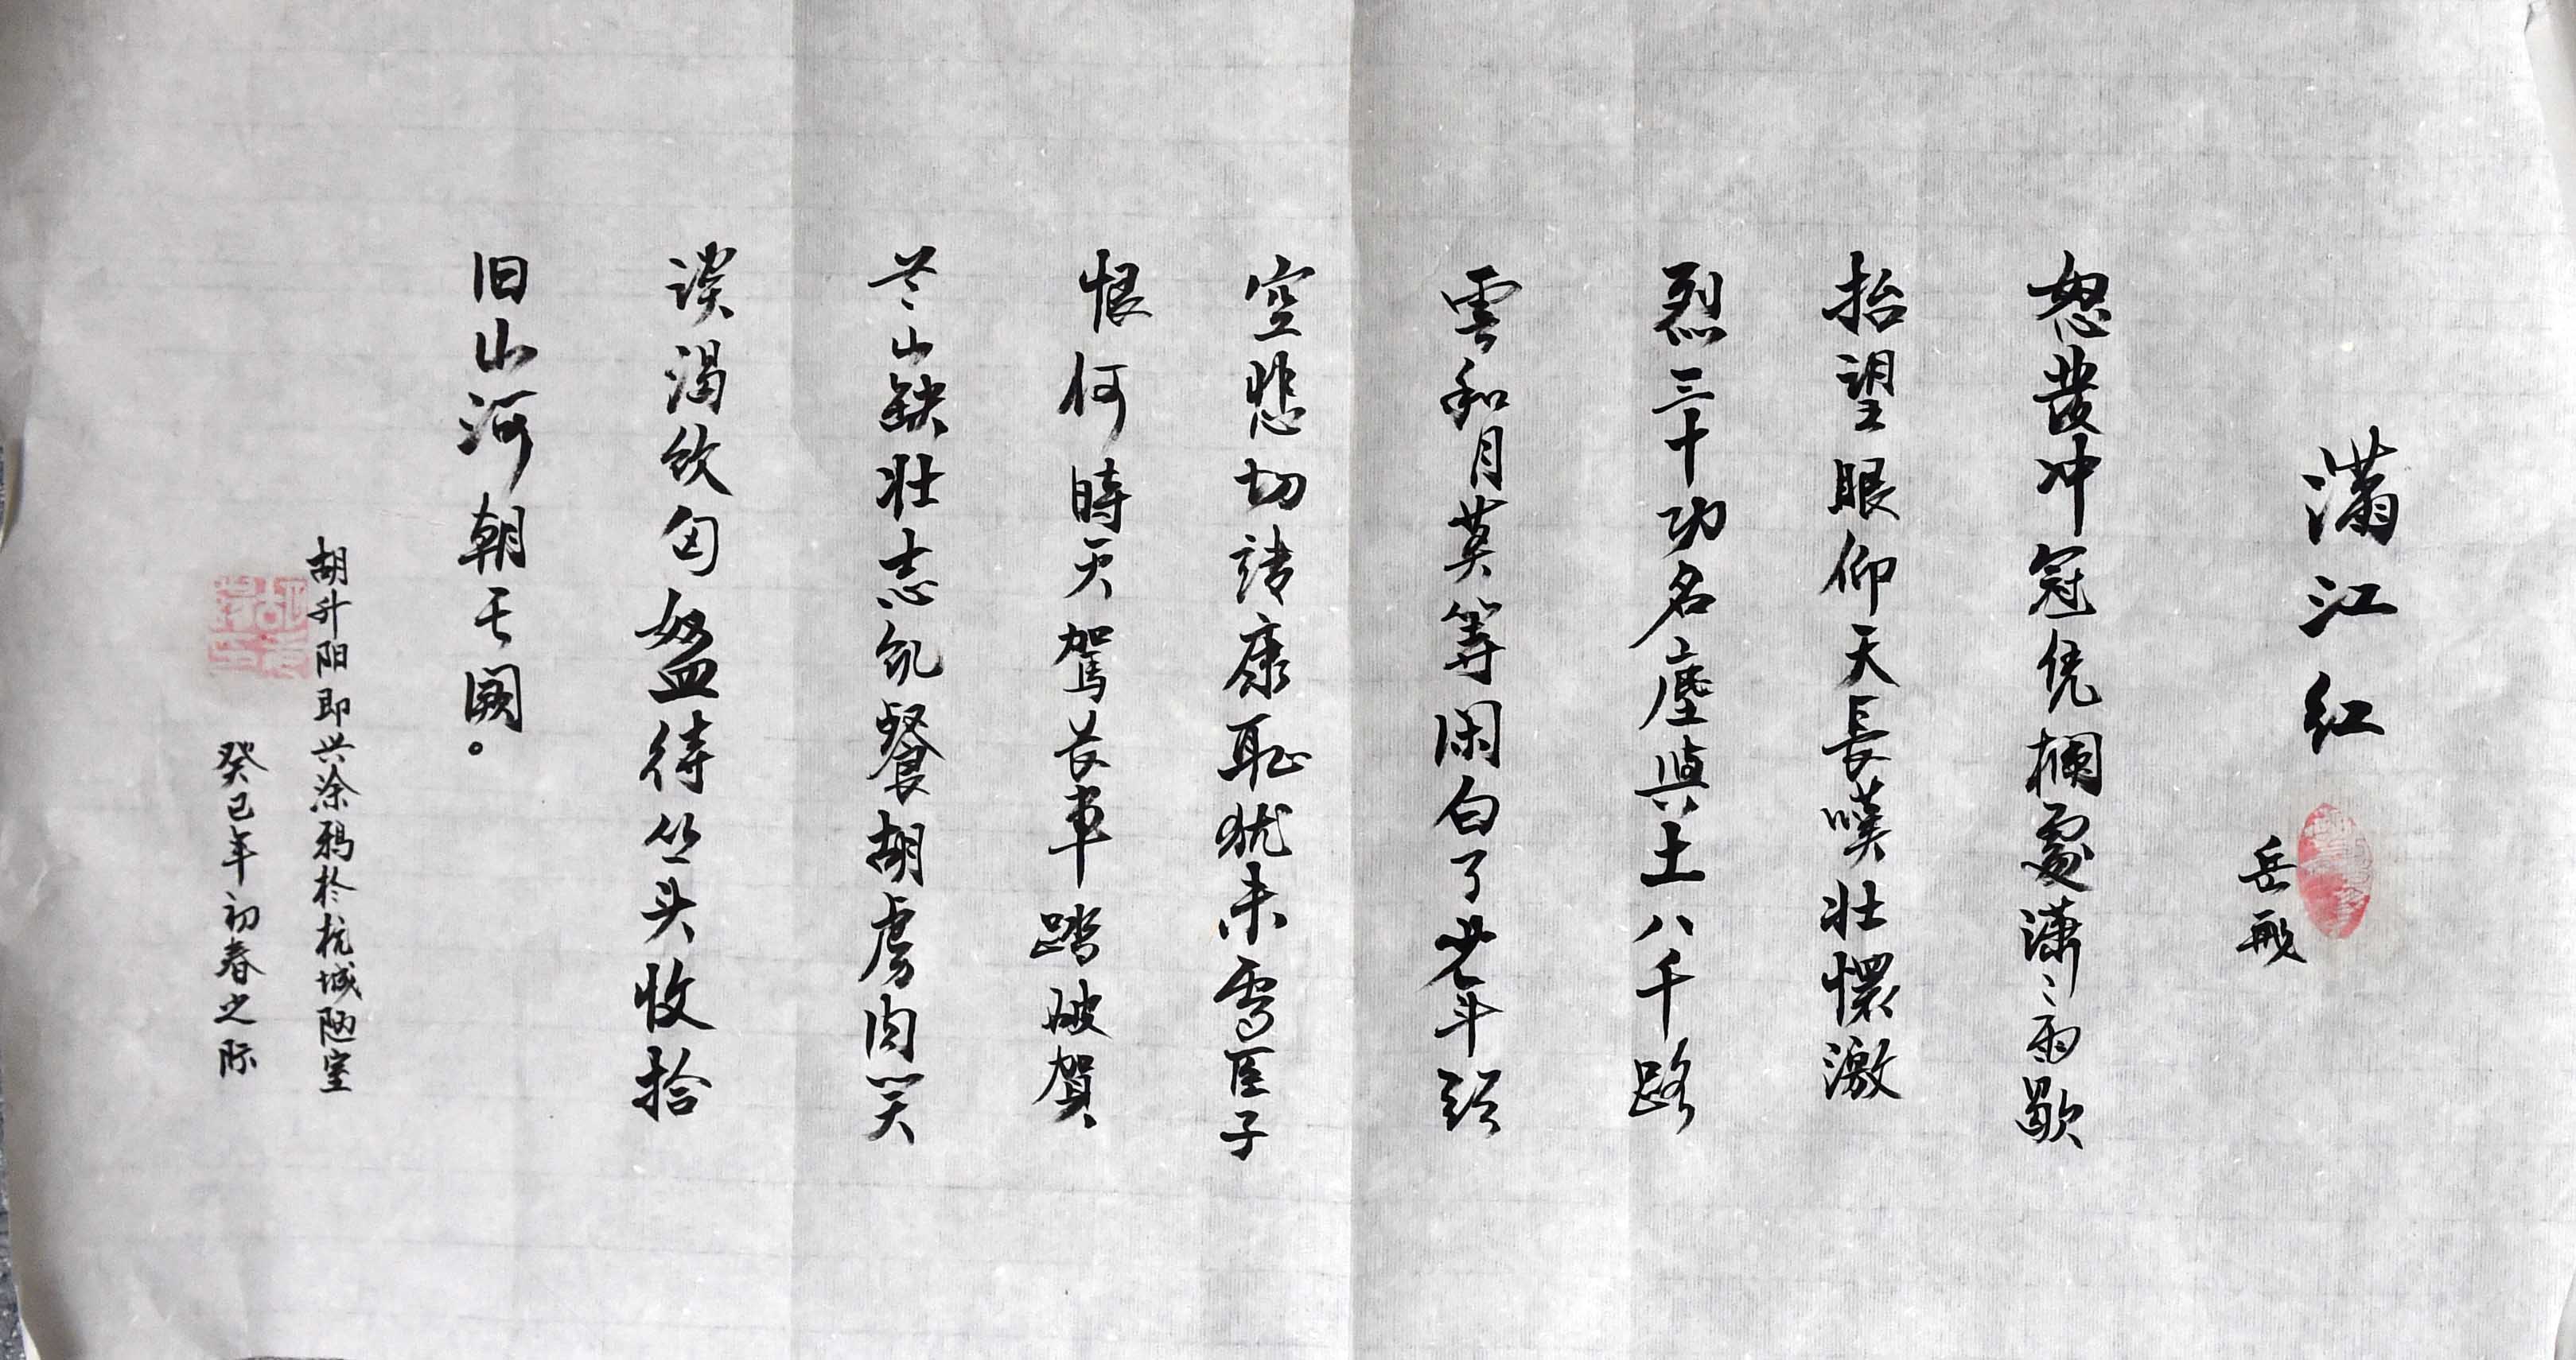 滿江红
岳飛
怒發冲冠凭欄處瀟〻雨歇
抬望眼仰天長嘆壮懷激
烈三十功名塵與土八千路
雲和月莫等闲白了少年頭
空悲切靖康耻犹未雪臣子
恨何時灭駕长車踏破賀
兰山缺壮志飢餐胡虏肉笑
谈渴饮匈奴血待从头收拾
旧山河朝天阙。
胡升阳即兴涂鸦於杭城陋室
癸巳年初春之际